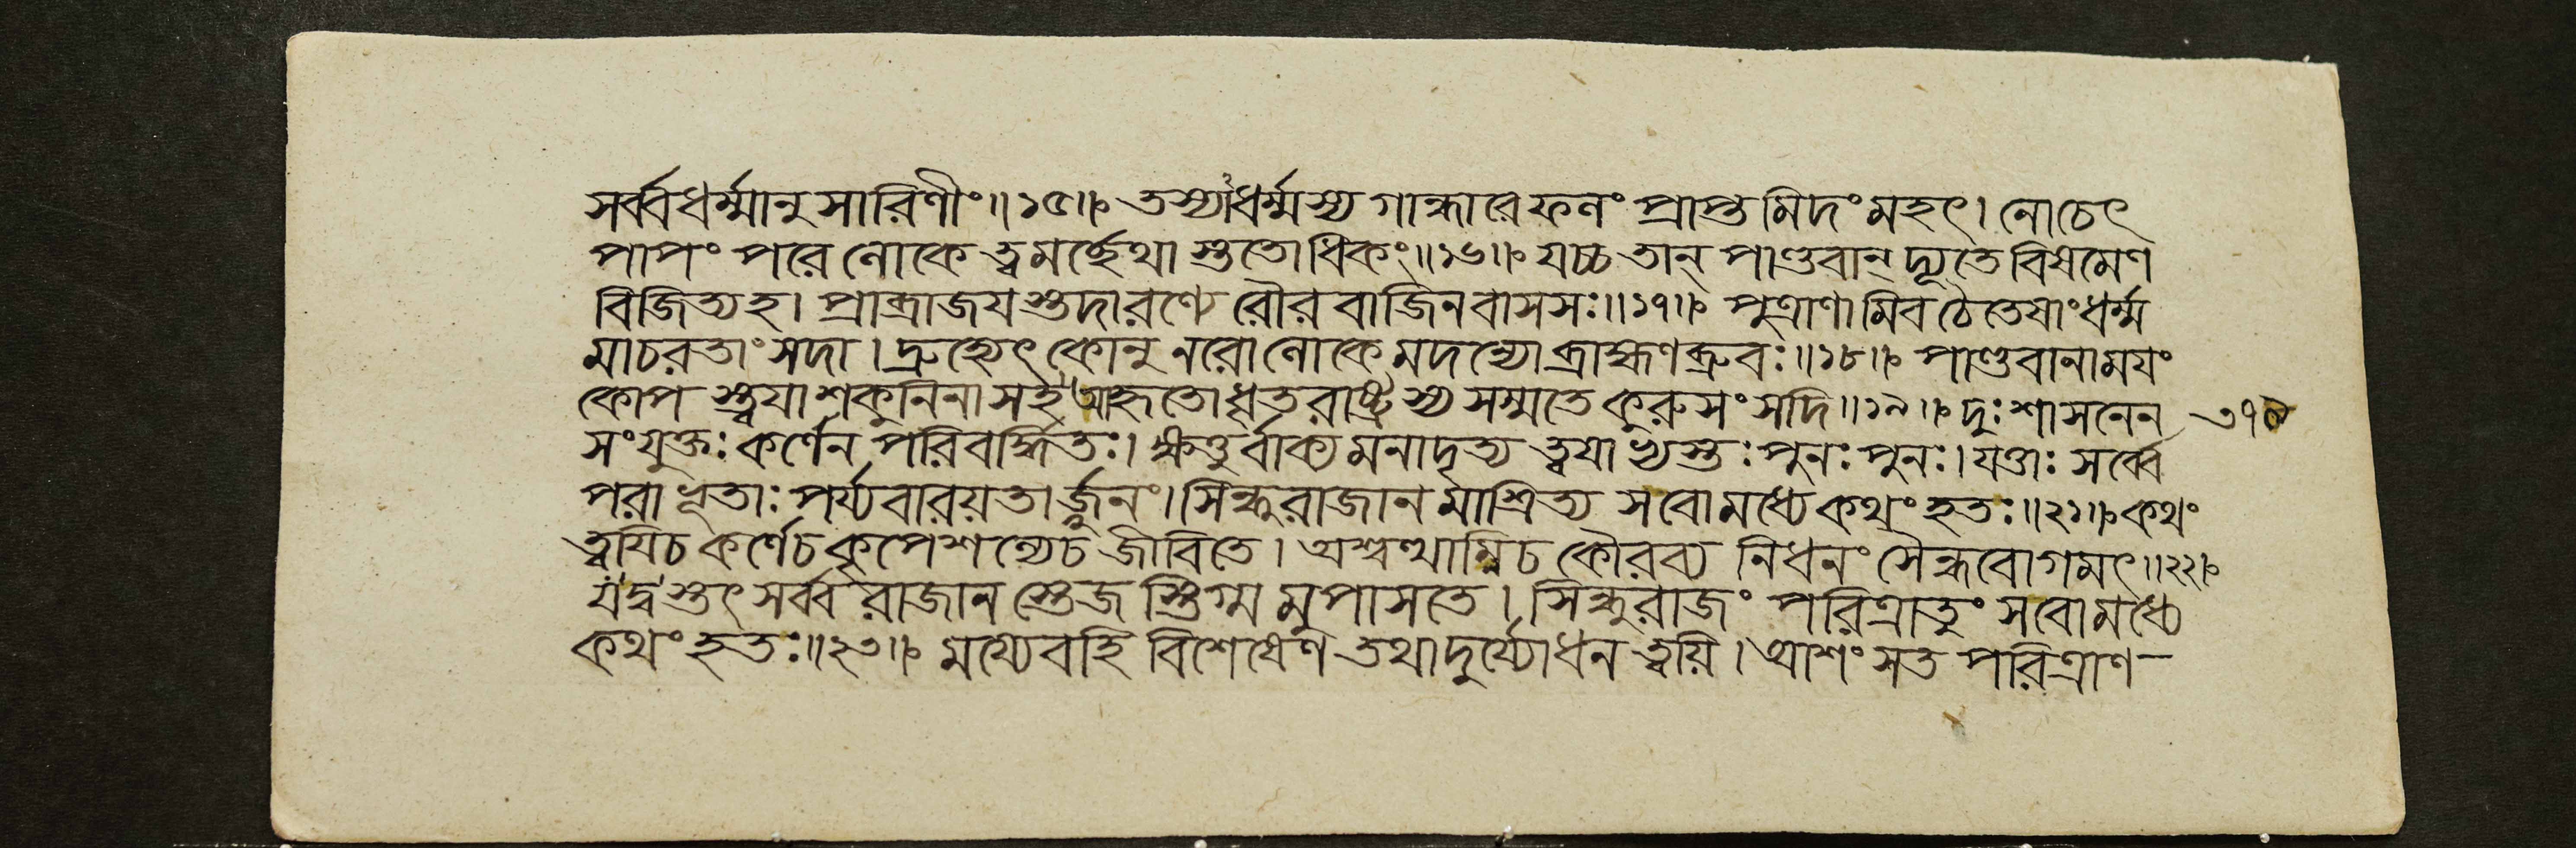 সর্ব্বধর্ম্মানুসারিণীং॥১৫॥ তস্যাধর্ম্মস্য গান্ধারে ফলং প্রাপ্তমিদং মহৎ। নোচেৎ
পাপং পরে লোকে ত্বমর্চ্ছেথাস্ততোধিকং॥১৬॥ যচ্চ তান্ পাণ্ডবান্ দ্যূতে বিষমেণ
বিজিত্যহ। প্রাব্রাজযস্তদারণ্যে রৌরবাজিনবাসসঃ॥১৭॥ পুত্রাণামিব চৈতেষাং ধর্ম্ম
মাচরতাং সদা। দ্রুহ্যেৎ কোনু নরো লোকে মদন্যো ব্রাহ্মণব্রুবঃ॥১৮॥ পাণ্ডবানাময়ং
কোপস্ত্বযা শকুনিনা সহ আহৃতো ধৃতরাষ্ট্রস্য সম্মতে কুরুসংসদি॥১৯॥ দুঃশাসনেন ৩৭৯
সংযুক্তঃ কর্ণেন পরিবর্দ্ধিতঃ। ক্ষত্তুর্বাক্যমনাদৃত্য ত্বযাভ্যস্তঃ পুনঃ পুনঃ। যত্তাঃ সর্ব্বে
পরাভূতাঃ পর্য্যবারয়তার্জ্জুনং। সিন্ধুরাজানমাশ্রিত্য সবোমধ্যে কথং হতঃ॥২১॥ কথং
ত্বযিচ কর্ণেচ কৃপেশল্যেচ জীবিতে। অশ্বত্থাম্নিচ কৌরব্য নিধনং সৈন্ধবোগমৎ॥২২॥
যদ্বস্তৎ সর্ব্বরাজানস্তেজস্তিগ্মমুপাসতে। সিন্ধুরাজং পরিত্রাতুং সবোমধ্যে
কথং হতঃ॥২৩॥ ময্যেবহি বিশেষেণ তথা দুর্য্যোধন ত্বয়ি। আশংসত পরিত্রাণ